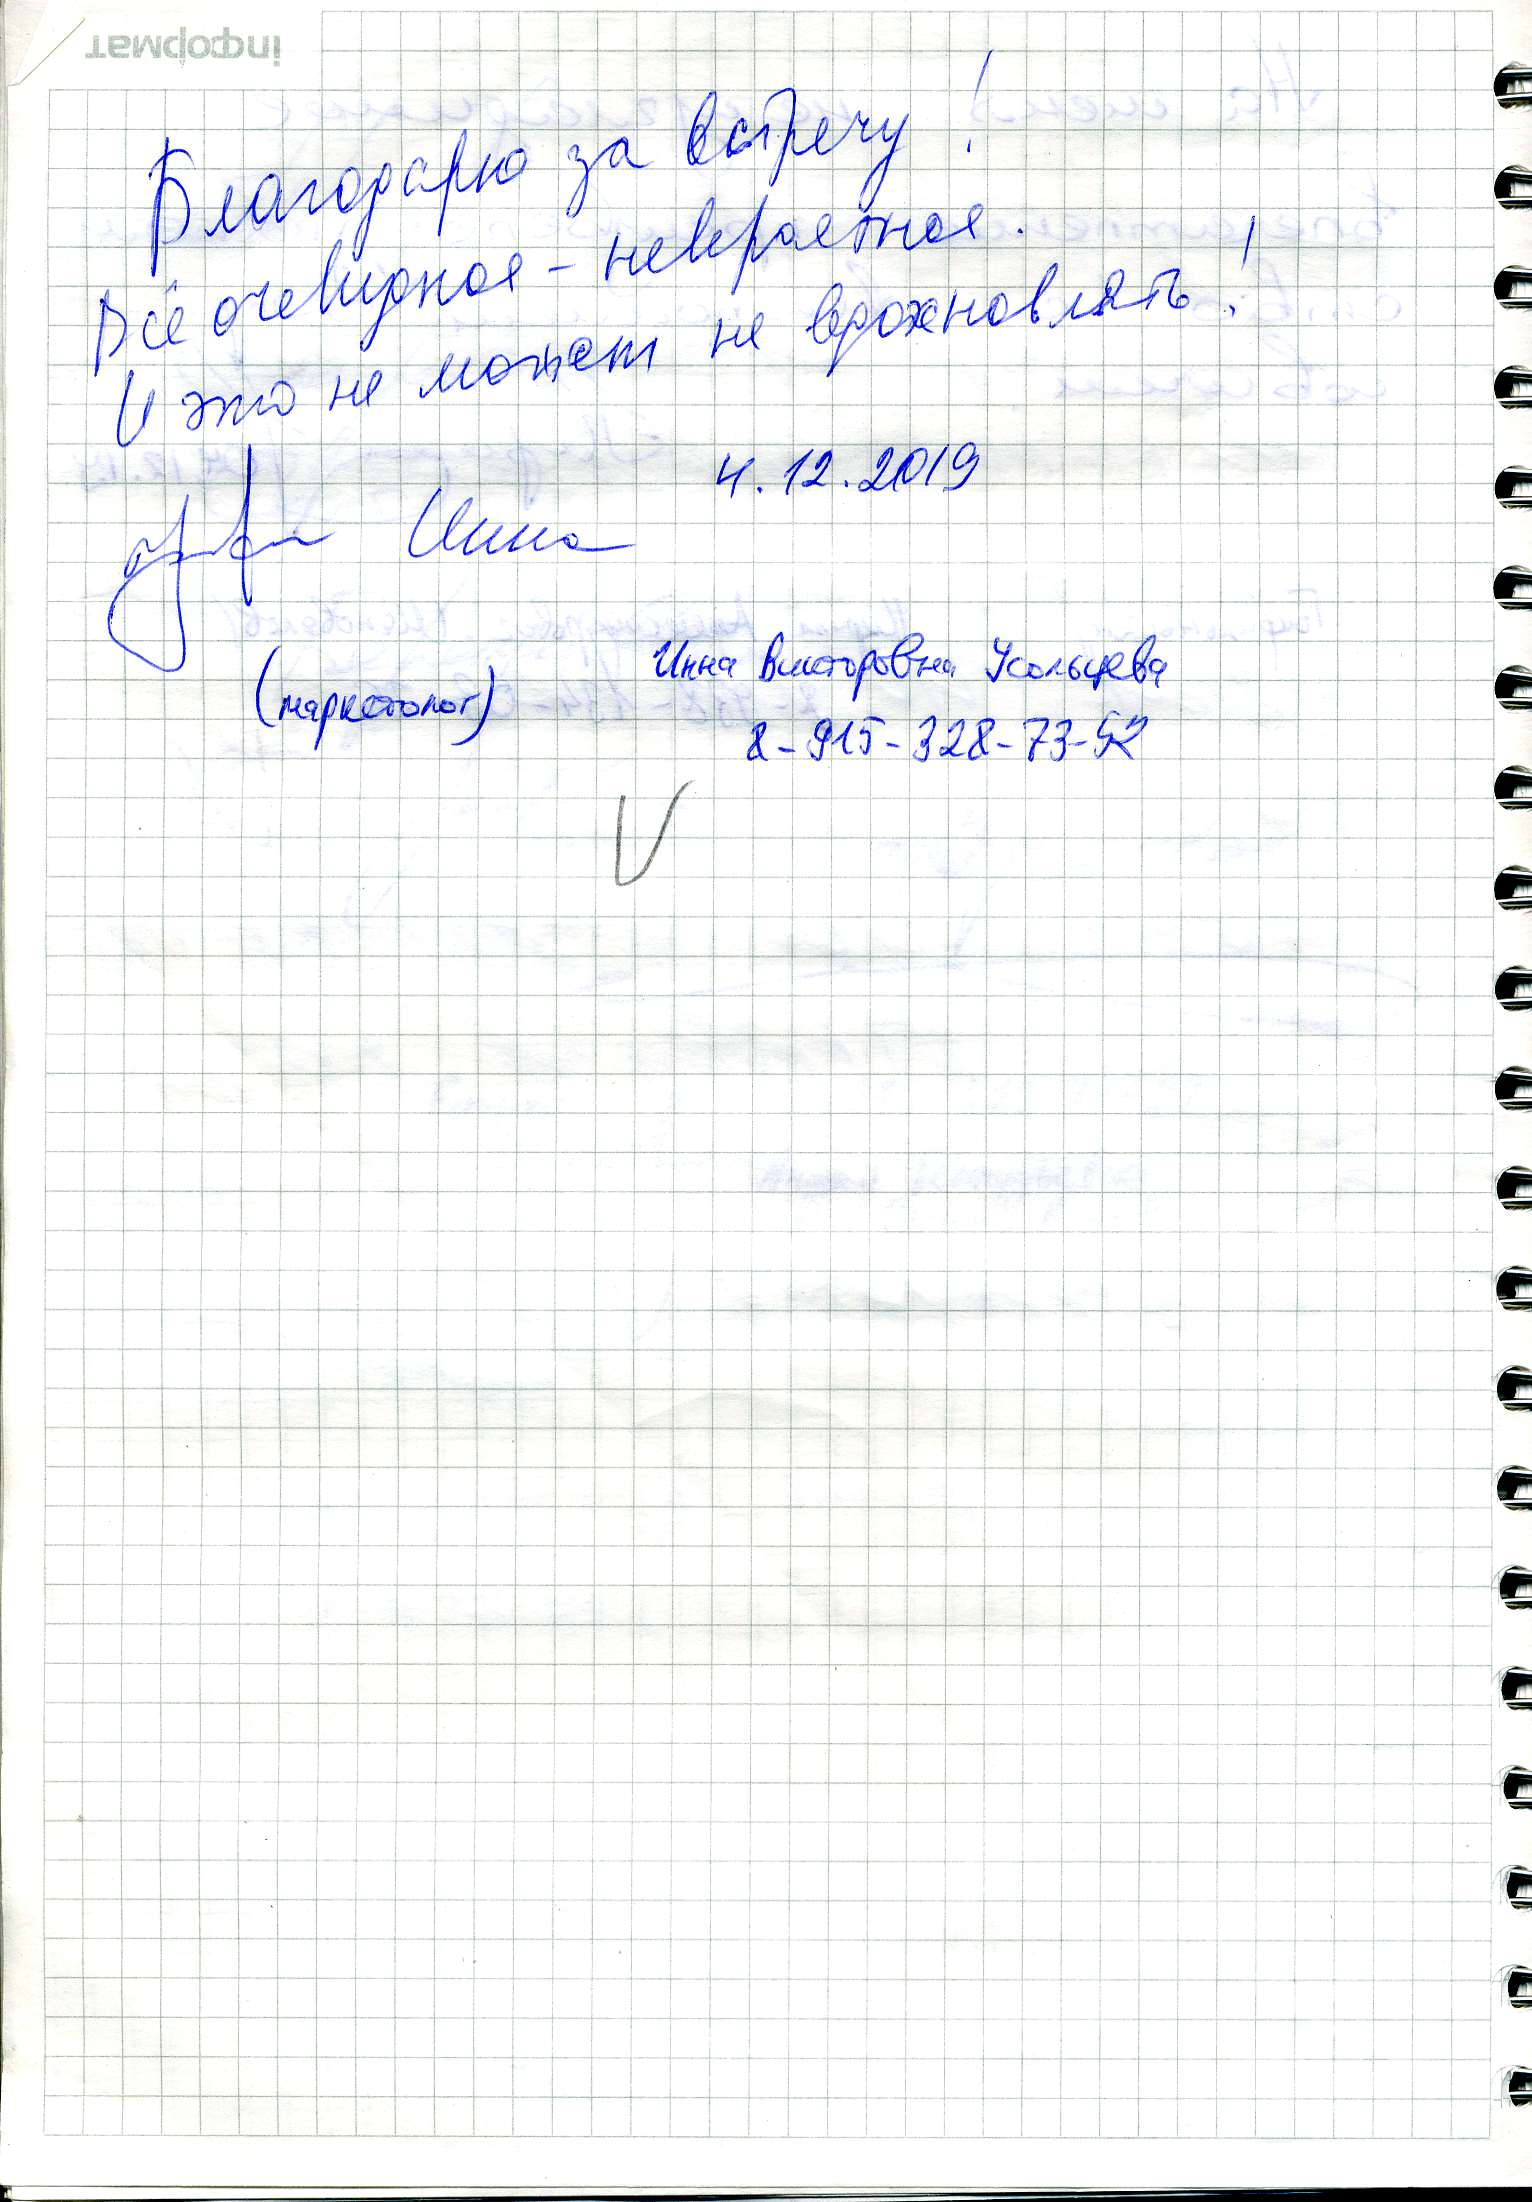 інформат
Благодарю за встречу!
Всё очевидное - невероятное.
И это не может не вдохновлять!
4.12.2019
Инна
Инна Викторовна Усольцева
(маркетолог)
8-915-328-73-52
V